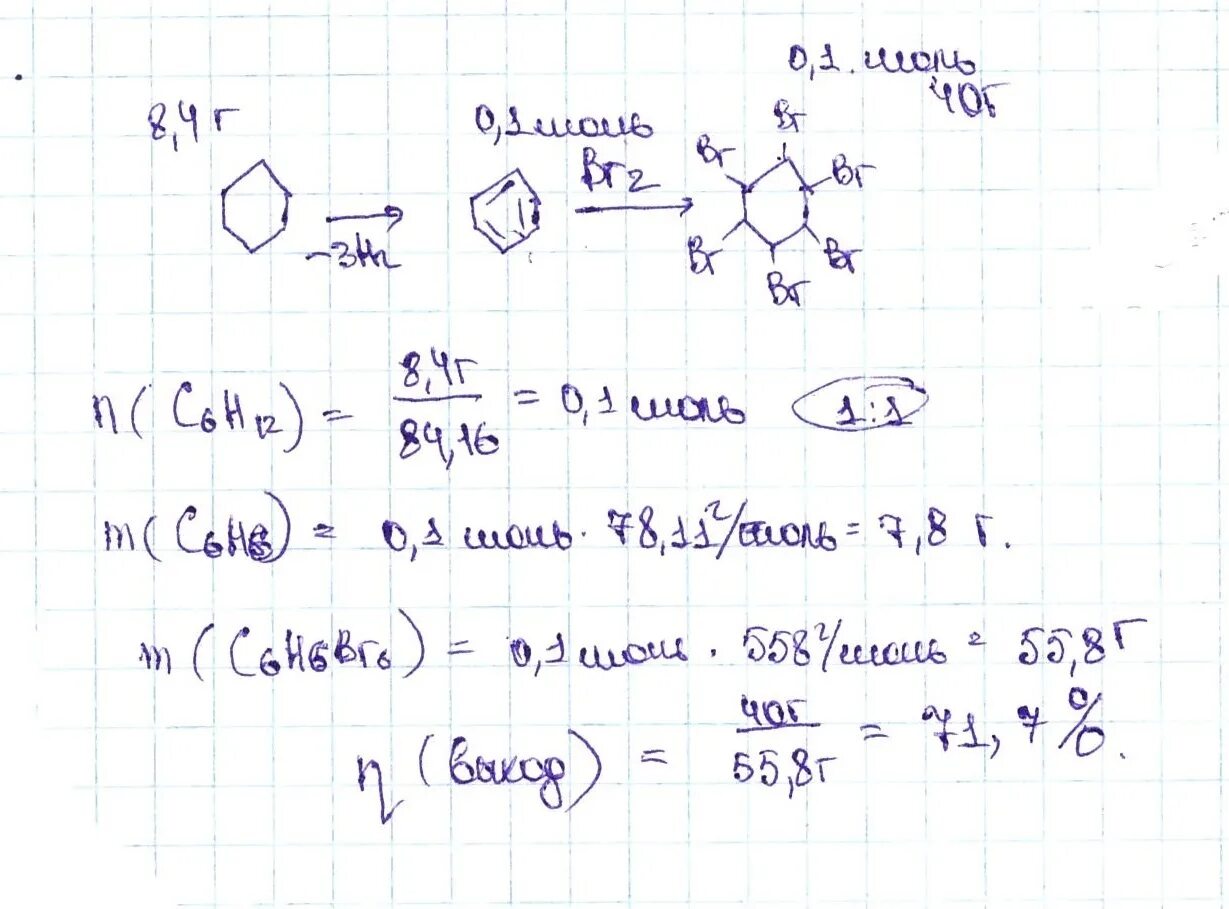 0,1 моль
40г
8,4 г
0,1 моль
Br
Br
Br
Br₂
-3H₂
Br
Br
Br
n(C₆H₁₂) = 8,4г/84,16 = 0,1 моль 1:1
m(C₆H₆) = 0,1 моль · 78,11 г/моль = 7,8 г.
m(C₆H₆Br₆) = 0,1 моль · 558 г/моль = 55,8 г
η (выход) = 40г/55,8г = 71,7 %.